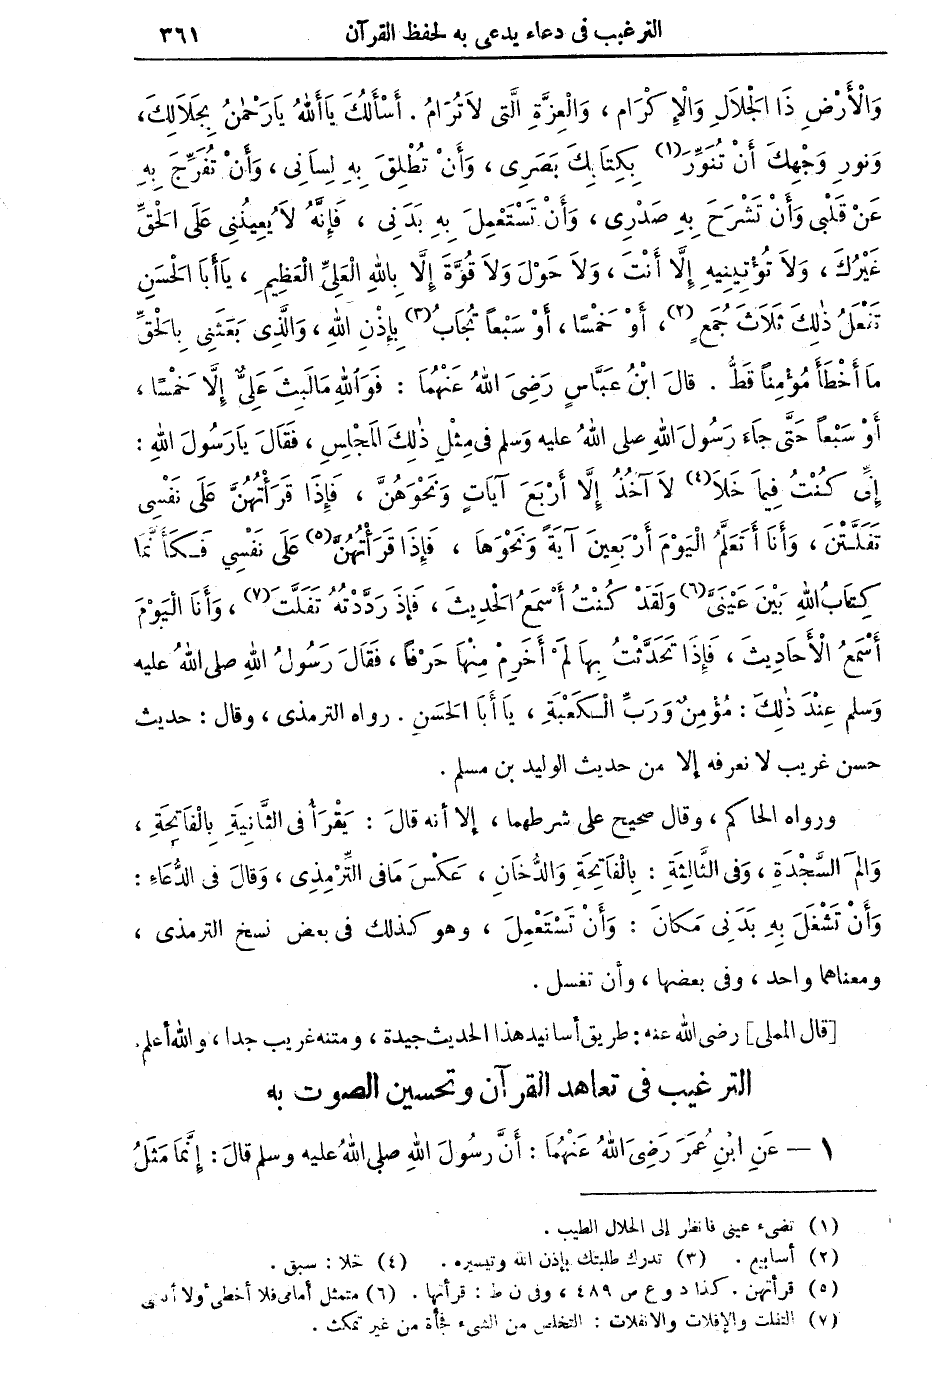 الترغيب فى دعاء يدعى به لحفظ القرآن ٣٦١
وَالْأَرْضِ ذَا الْجَلَالِ وَالْإِكْرَامِ ، وَالْعِزَّةِ الَّتِى لاَتُرَامُ . أَسْأَلُكَ يَاأَللهُ يَارَحْمٰنُ بِجَلَالِكَ ،
وَنورِ وَجْهِكَ أَنْ تُنَوِّرَ (١) بِكِتَابِكَ بَصَرِى ، وَأَنْ تُطْلِقَ بِهِ لِسَانِى ، وَأَنْ تُفَرِّجَ بِهِ
عَنْ قَلْبِى وَأَنْ تَشْرَحَ بِهِ صَدْرِى ، وَأَنْ تَسْتَعْمِلَ بِهِ بَدَنِى ، فَإِنَّهُ لاَ يُعِينُنِى عَلَى الْحَقِّ
غَيْرُكَ ، وَلاَ تُؤْتِينِيهِ إِلَّا أَنْتَ ، وَلاَ حَوْلَ وَلاَ قُوَّةَ إِلَّا بِاللهِ الْعَلِىِّ الْعَظِيمِ ، يَاأَبَا الْحَسَنِ
تَفْعَلُ ذٰلِكَ ثَلَاثَ جُمَعٍ (٢) ، أَوْ خَمْسًا ، أَوْ سَبْعاً تُجَابُ (٣) بِإِذْنِ اللهِ ، وَالَّذِى بَعَثَنِى بِالْحَقِّ
مَا أَخْطَأَ مُؤْمِناً قَطُّ . قالَ ابْنُ عَبَّاسٍ رَضِىَ اللهُ عَنْهُمَا : فَوَاللهِ مَالَبِثَ عَلِىٌّ إِلَّا خَمْسًا ،
أَوْ سَبْعاً حَتَّى جَاءَ رَسُولَ اللهِ صلى اللهُ عليه وسلم فى مِثْلِ ذٰلِكَ الْمَجْلِسِ ، فَقَالَ يَارَسُولَ اللهِ :
إِنِّى كُنْتُ فِيمَا خَلاَ (٤) لاَ آخُذُ إِلَّا أَرْبَعَ آيَاتٍ وَنَحْوَهُنَّ ، فَإِذَا قَرَأْتُهُنَّ عَلَى نَفْسِى
تَفَلَّتْنَ ، وَأَنَا أَتَعَلَّمُ الْيَوْمَ أَرْبَعِينَ آيَةً وَنَحْوَهَا ، فَإِذَا قَرَأْتُهُنَّ (٥) عَلَى نَفْسِي فَكَأَنَّمَا
كِتَابُ اللهِ بَيْنَ عَيْنَىَّ (٦) وَلَقَدْ كُنْتُ أَسْمَعُ الْحَدِيثَ ، فَإِذَ رَدَّدْتُهُ تَفَلَّتَ (٧) ، وَأَنَا الْيَوْمَ
أَسْمَعُ الْأَحَادِيثَ ، فَإِذَا تَحَدَّثْتُ بِهَا لَمْ أَخْرِمْ مِنْهَا حَرْفًا ، فَقَالَ رَسُولُ اللهِ صلى اللهُ عليه
وَسلم عِنْدَ ذٰلِكَ : مُؤْمِنٌ وَرَبِّ الْكَعْبَةِ ، يا أَبَا الحَسَنِ . رواه الترمذى ، وقال : حديث
حسن غريب لا نعرفه إلا من حديث الوليد بن مسلم .
ورواه الحاكم ، وقال صحيح على شرطهما ، إلا أنه قالَ : يَقْرَأُ فى الثَّانِيَةِ بِالْفَاتِحَةِ ،
وَالمَ السَّجْدَةِ ، وَفى الثَّالِثَةِ : بِالْفَاتِحَةِ وَالدُّخَانِ ، عَكْسَ مَافى التِّرْمِذِى ، وَقالَ فى الدُّعَاءِ :
وَأَنْ تَشْغَلَ بِهِ بَدَنِى مَكانَ : وَأَنْ تَسْتَعْمِلَ ، وهو كذلك فى بعض نسخ الترمذى ،
ومعناهما واحد ، وفى بعضها ، وأن تغسل .
[قال المملى] رضى الله عنه : طريق أسانيد هذا الحديث جيدة ، ومتنه غريب جدا ، والله أعلم .
الترغيب فى تعاهد القرآن وتحسين الصوت به
١ — عَنِ ابْنِ عُمَرَ رَضِىَ اللهُ عَنْهُمَا : أَنَّ رَسُولَ اللهِ صلى اللهُ عليه وسلم قالَ : إِنَّمَا مَثَلُ
(١) تضىء عينى فانظر إلى الحلال الطيب .
(٢) أسابيع . (٣) تدرك طلبتك بإذن الله وتيسيره . (٤) خلا : سبق .
(٥) قرأتهن . كذا د و ع ص ٤٨٩ ، وفى ن ط : قرأتها . (٦) متمثل أمامى فلا أخطى ولا أنسى
(٧) التفلت والإفلات والانفلات : التخلص من الشىء فجأة من غير تمكث .